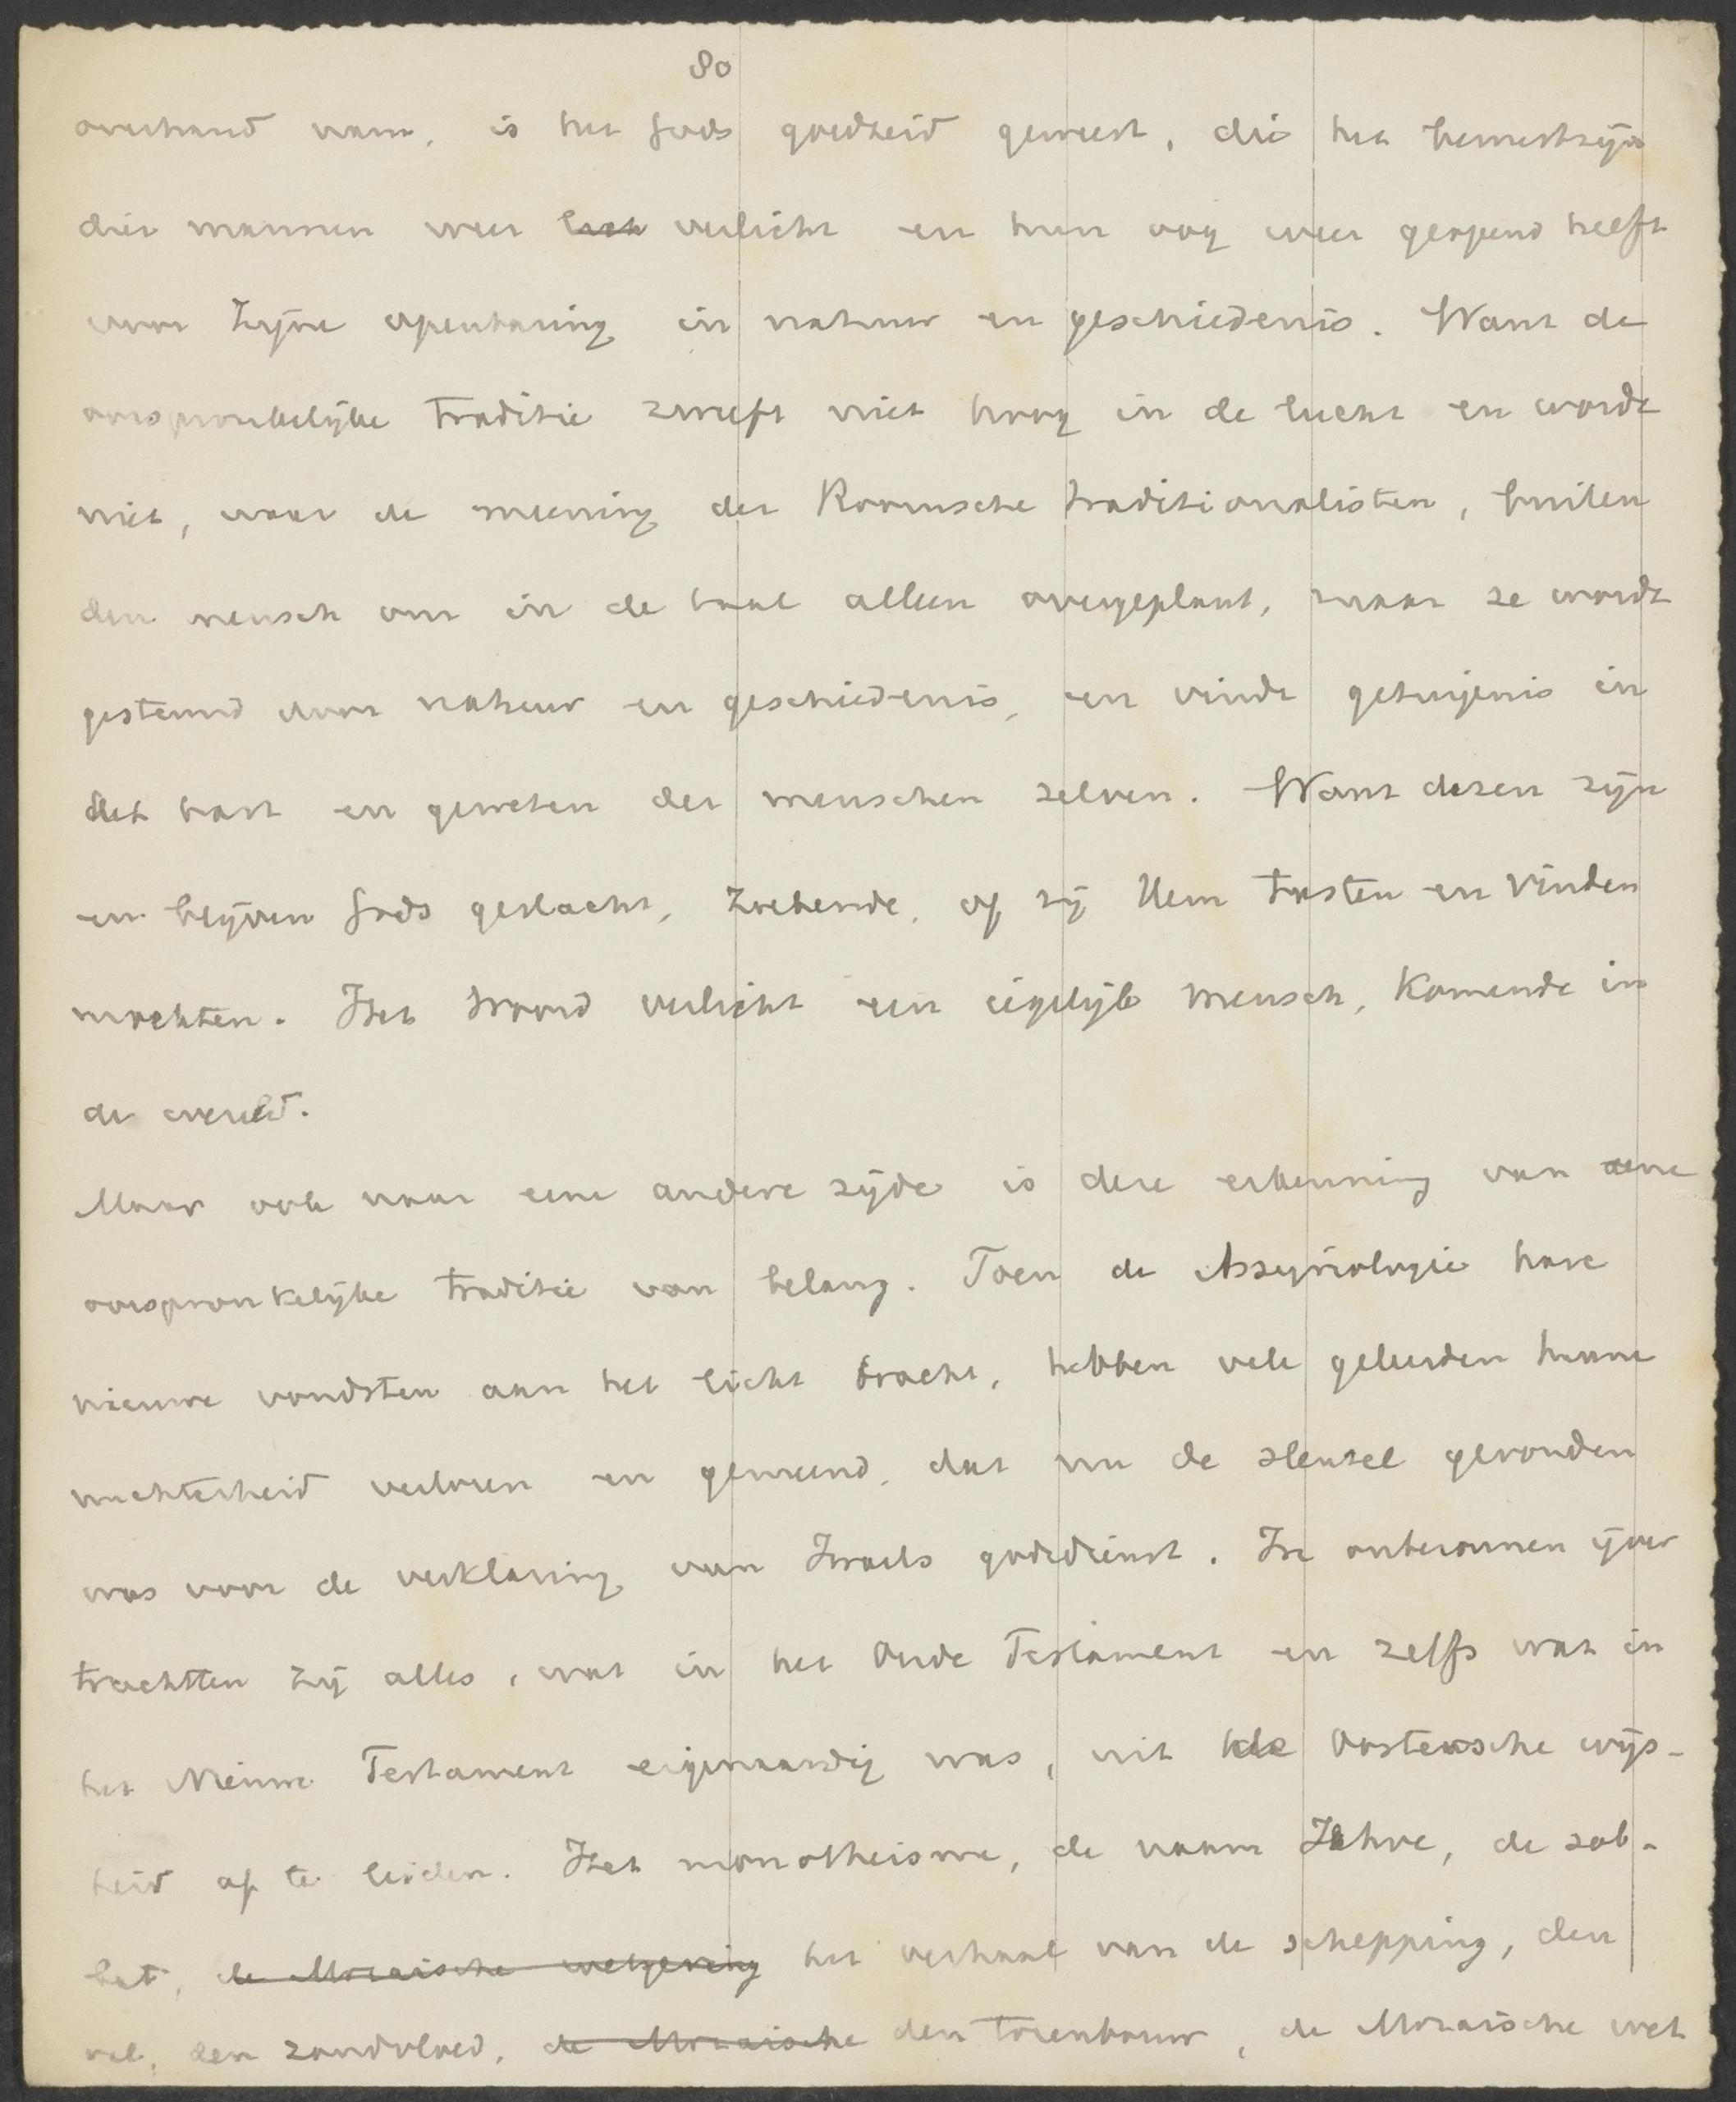 80
overhand nam, is het Gods goedheid geweest, die het bewustzijn
dier mannen weer verlicht en hun oog weer geopend heeft
voor Zijne openbaring in natuur en geschiedenis. Want de
oorspronkelijke traditie zweeft niet hoog in de lucht en wordt
niet, naar de meening der Roomsche traditionalisten, buiten
den mensch om in de taal alleen overgeplant, maar ze wordt
gesteund door natuur en geschiedenis, en vindt getuigenis in
het hart en geweten der menschen zelven. Want dezen zijn
en blijven Gods geslacht, zoekende, of zij Hem tasten en vinden
mochten. Het Woord verlicht een iegelijk mensch, komende in
de wereld.
Maar ook naar eene andere zijde is deze erkenning van eene
oorspronkelijke traditie van belang. Toen de Assyriologie hare
nieuwe vondsten aan het licht bracht, hebben vele geleerden hunne
nuchterheid verloren en gemeend, dat nu de sleutel gevonden
was voor de verklaring van Israels godsdienst. In onbezonnen ijver
trachtten zij alles, wat in het Oude Testament en zelfs wat in
het Nieuwe Testament eigenaardig was, uit de Oostersche wijs-
heid af te leiden. Het monotheisme, de naam Jahve, de sab-
bat, de Mozaische wetgeving het verhaal van de schepping, den
val, den zondvloed, de Mozaische den torenbouw, de Mozaische wet